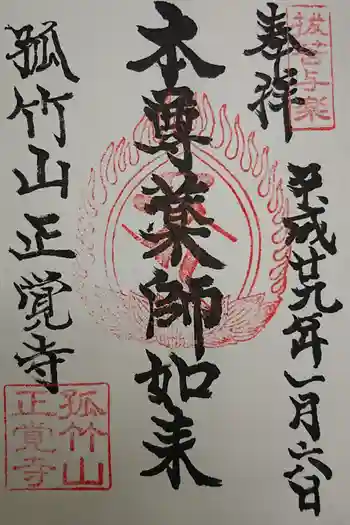 奉拝
抜苦与楽
平成廿九年一月六日
本尊薬師如来
孤竹山正覚寺
孤竹山
正覚寺